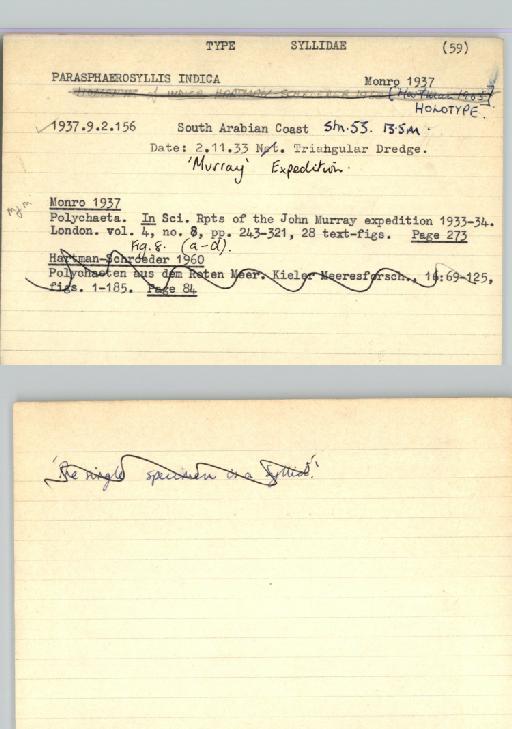 TYPE SYLLIDAE (59)
PARASPHAEROSYLLIS INDICA Monro 1937
HOLOTYPE.
1937.9.2.156 South Arabian Coast Stn.53. 13.5m.
Date: 2.11.33 Nat. Triangular Dredge.
'Murray' Expedition.
Monro 1937
Polychaeta. In Sci. Rpts of the John Murray expedition 1933-34.
London. vol. 4, no. 8, pp. 243-321, 28 text-figs. Page 273
Fig.8. (a-d).
Hartman-Schroeder 1960
Polychaeten aus dem Roten Meer. Kieler Meeresforsch., 16:69-125,
figs. 1-185. Page 84
'The single specimen is a syllid'.